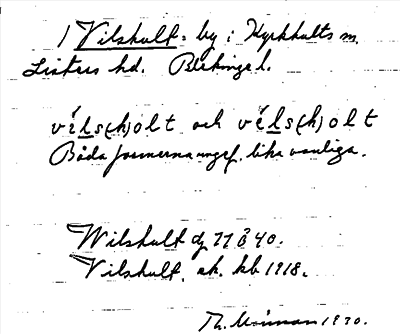 / Vilshult = by i Kyrkhults sn.
Listers hd. Blekinge l.
vı́ls(h)olt och vı́ls(h)olt
Båda formerna ungef. lika vanliga.
Wilshult dj 77 B 40.
Vilshult. ek. kb 1918.
Th. 1930.